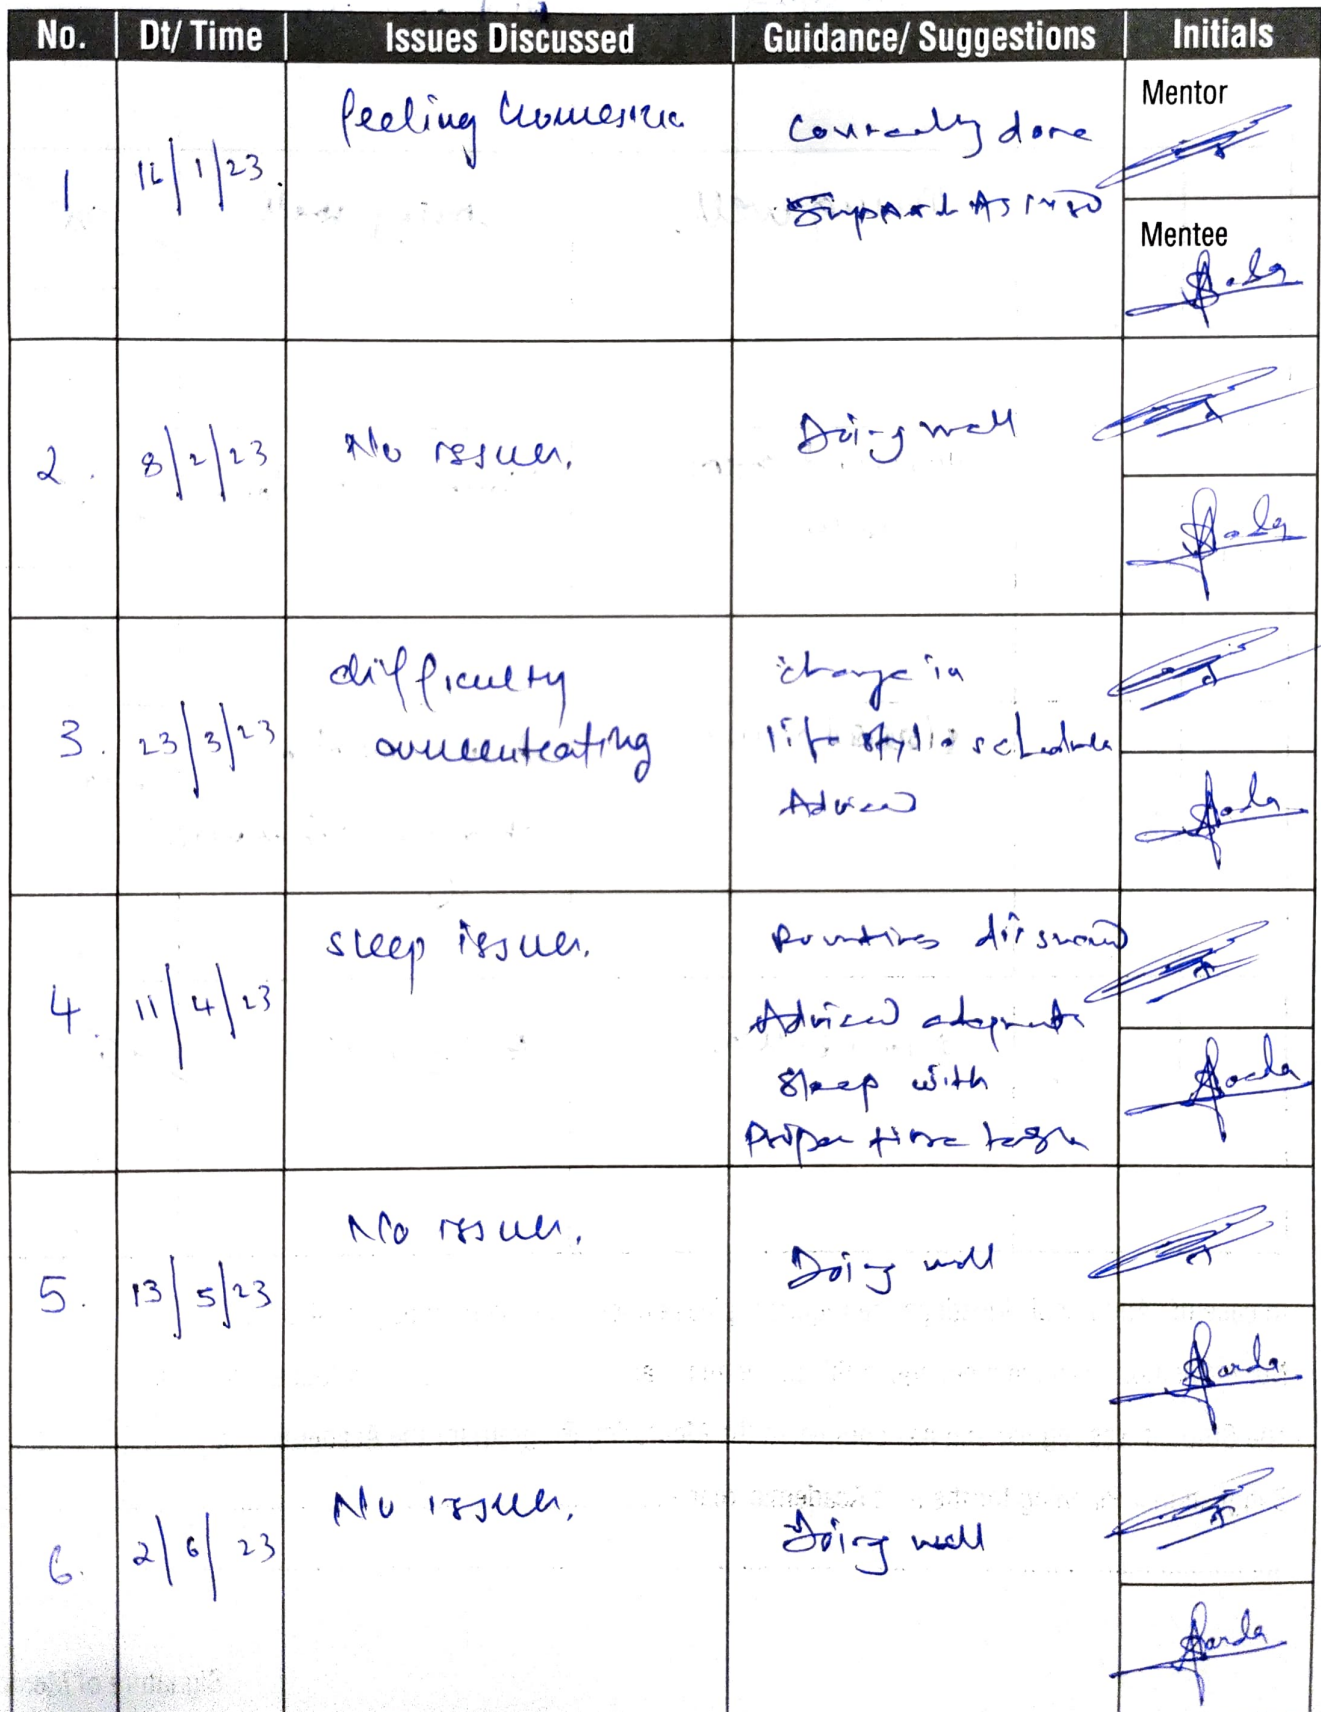 No. Dt/ Time Issues Discussed Guidance/ Suggestions Initials
1. 16/1/23. feeling homesick
Counselling done
Support Assured
Mentor
Mentee
2. 8/2/23 No issues. Doing well
3. 23/3/23 difficulty
concentrating
change in
life style schedule
Advised
4. 11/4/23 sleep issues.
Routines discussed
Advised adequate
Sleep with
Proper time
5. 13/5/23 No issues. Doing well
6. 2/6/23 No issues. Doing well